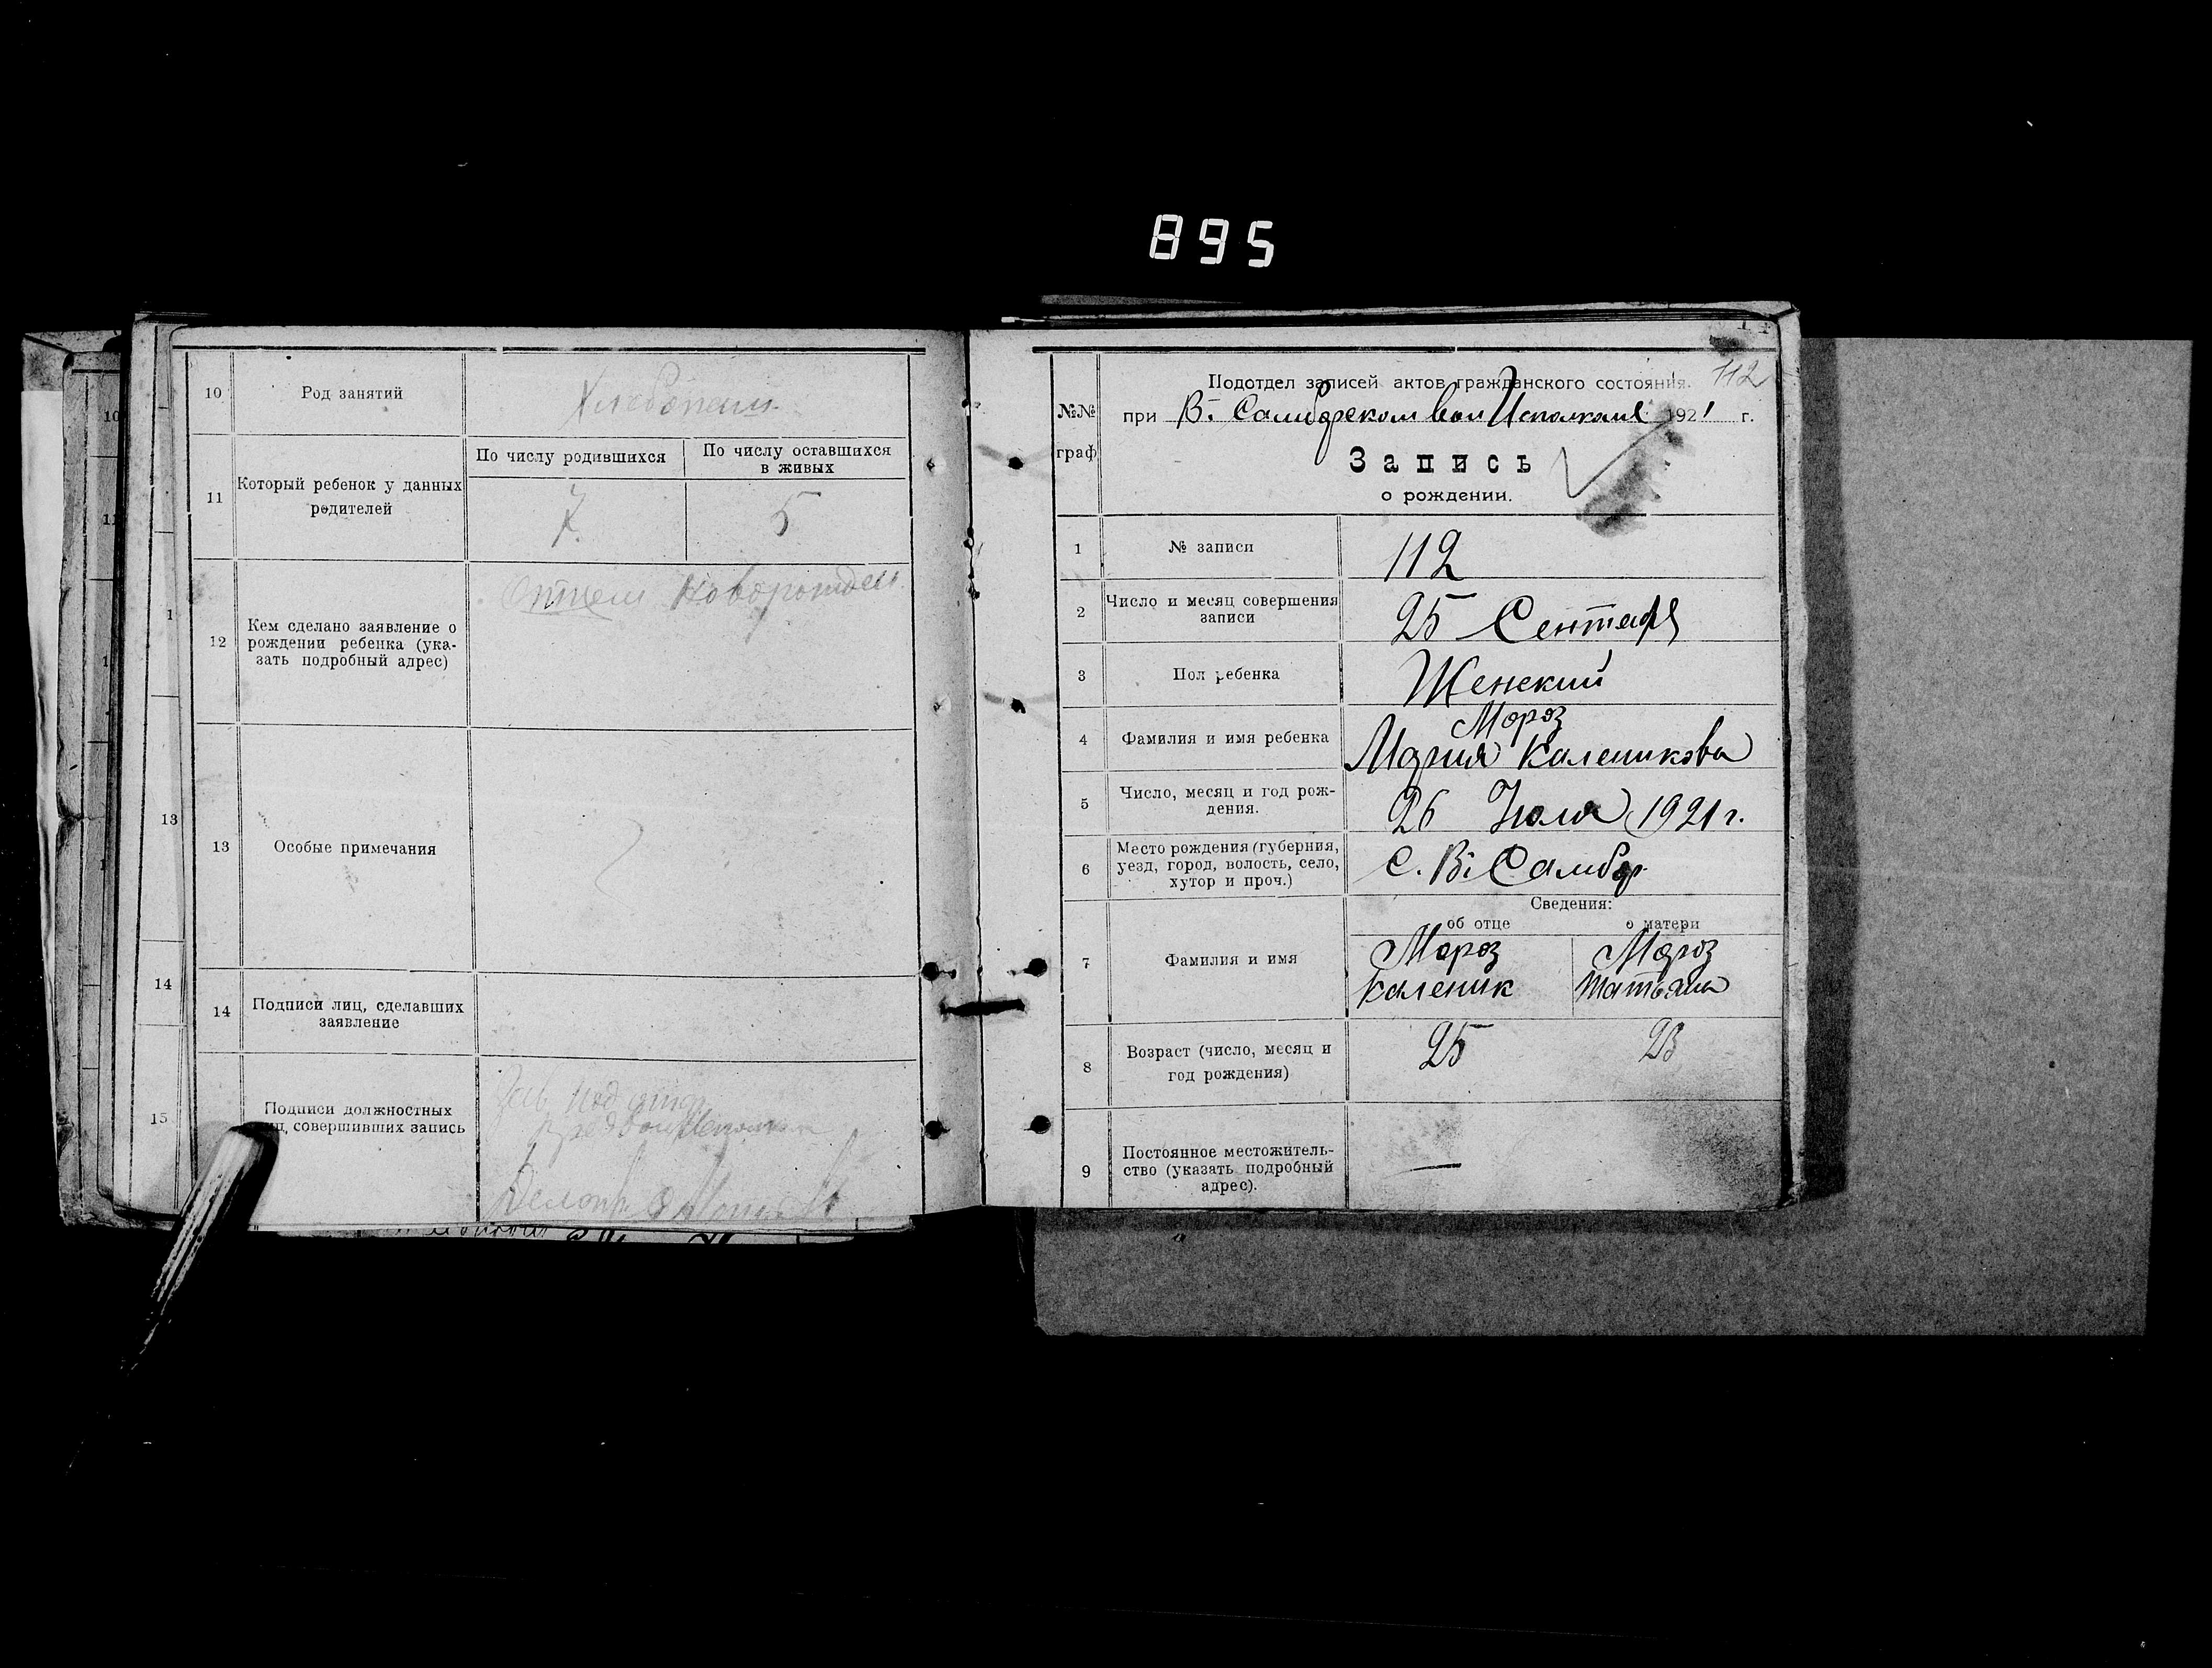 895
10
Род занятий
Хлебопаш.
11
Который ребенок у данных
родителей
По числу родившихся
По числу оставшихся
в живых
7
5
12
Кем сделано заявление о
рождении ребенка (ука-
зать подробный адрес)
Отцем Новорожден.
13
Особые примечания
14
Подписи лиц, сделавших
заявление
15
Подписи должностных
лиц, совершивших запись
Зав. подотд.
Делопр.
112
№№
граф
Подотдел записей актов гражданского состояния.
при В. Самборском Вол Исполкоме 1921 г.
Запись
о рождении.
1
№ записи
112
2
Число и месяц совершения
записи
25 Сентября
3
Пол ребенка
Женский
4
Фамилия и имя ребенка
Мороз
Мария Каленикова
5
Число, месяц и год рож-
дения.
26 Июля 1921 г.
6
Место рождения (губерния,
уезд, город, волость, село,
хутор и проч.)
С. В. Самбор
Сведения:
об отце
о матери
7
Фамилия и имя
Мороз
Каленик
Мороз
Татьяна
8
Возраст (число, месяц и
год рождения)
25
23
9
Постоянное местожитель-
ство (указать подробный
адрес).
—